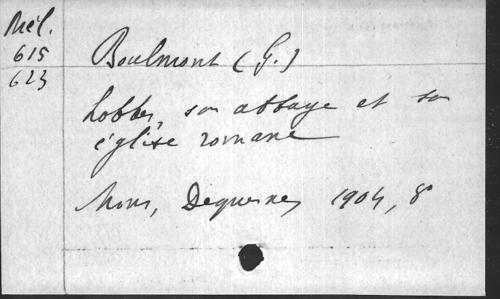 Mél.
615
623
Boulmont (G.)
Lobbes, son abbaye et son
église romane
Mons, Dequesne, 1904, 8°